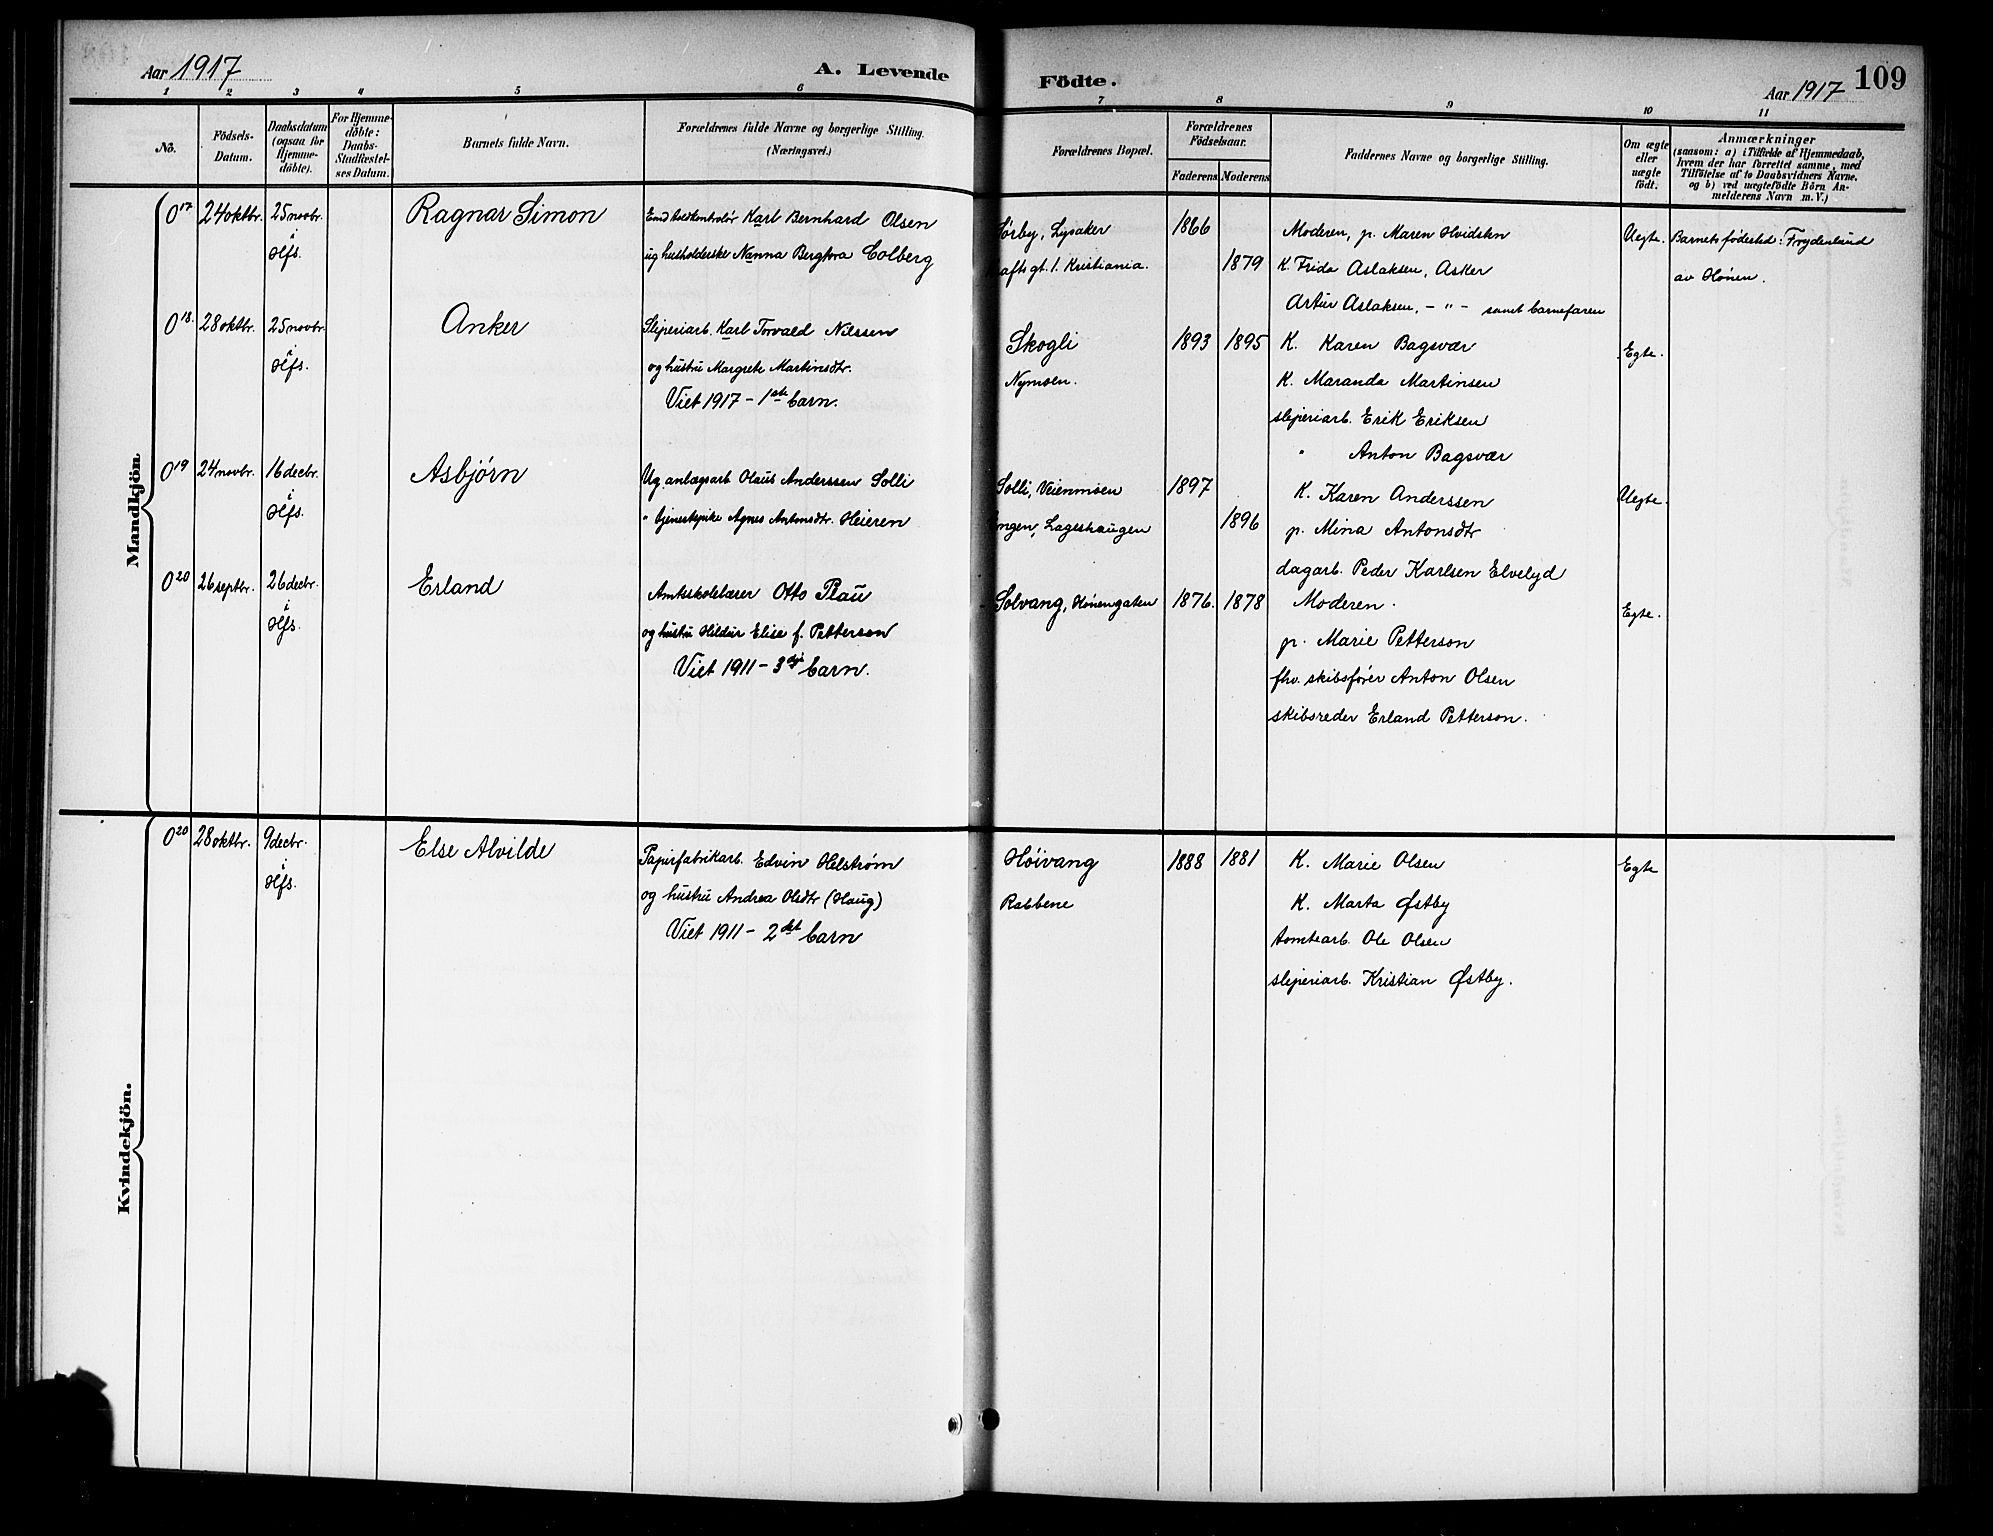 Aar 1917
A. Levende
Födte.
Aar 1917
109
1 2 3 4 5 6 7 8 9 10 11
No.
Födsels-
Datum.
Daabsdatum
(ogsaa for
Hjemme-
döbte).
For Hjemme-
döbte:
Daabs-
Stadfæstel-
ses Datum.
Barnets fulde Navn.
Forældrenes fulde Navne og borgerlige Stilling.
(Næringsvei.)
Forældrenes Bopæl.
Forældrenes
Födselsaar.
Faderens Moderens
Faddernes Navne og borgerlige Stilling.
Om ægte
eller
uægte
födt.
Anmærkninger
(saasom: a) i Tilfælde af Hjemmedaab,
hvem der har forrettet samme, med
Tilföielse af to Daabsvidners Navne,
og b) ved uægtefödte Börn An-
melderens Navn m. V.)
Mandkjön
0 17
24 oktbr.
25 novbr.
i
Hfs.
Ragnar Simon
Karl Bernhard Olsen
ug husholderske Nanna Bergtora Colberg
Sörby, Lysaker
gt. 1. Kristiania.
1866
1879
Moderen, p. Maren Hvidsten
K. Frida Aslaksen, Asker
Artur Aslaksen, - " - samt barnefaren
Uegte.
Barnets fødested: Frydenlund
av Hönen.
0 18.
28 oktbr.
25 novbr.
i
Hfs.
Anker
Sliperiarb. Karl Torvald Nilssen
og hustru Margrete Martinsdtr.
Viet 1917 - 1ste barn.
Skogli
Nymoen.
1893
1895
K. Karen Bagsvær
K. Maranda Martinsen
sliperiarb. Erik Eriksen
" Anton Bagsvær
Egte.
0 19
24 novbr.
16 decbr.
i
Hfs.
Asbjørn
Ug. anlægsarb. Olaus Anderssen Solli
" tjenestepike Agnes Antonsdtr. Heieren
Solli, Veienmoen
Engen, Lageshaugen
1897
1896
K. Karen Anderssen
p. Mina Antonsdtr
dagarb. Peder Karlsen Elvelyd
Uegte.
0 20
26 septbr.
26 decbr.
i
Hfs.
Erland
Amtsskolelærer Otto Plau
og hustru Hildur Elise f. Petterson
Viet 1911 - 3dje barn.
Solvang, Hönengaten
1876.
1878
Moderen.
p. Marie Petterson
fhv. skibsfører Anton Olsen
skibsreder Erland Petterson.
Egte.
Kvindekjön.
0 20
28 oktbr.
9 decbr.
i
Hfs.
Else Alvilde
Papirfabrikarb. Edvin Helstrøm
og hustru Andrea Olsdtr (Haug)
Viet 1911 - 2det barn
Höivang
Rabbene
1888
1881
K. Marie Olsen
K. Marta Østby
tomtearb. Ole Olsen
sliperiarb. Kristian Østby.
Egte